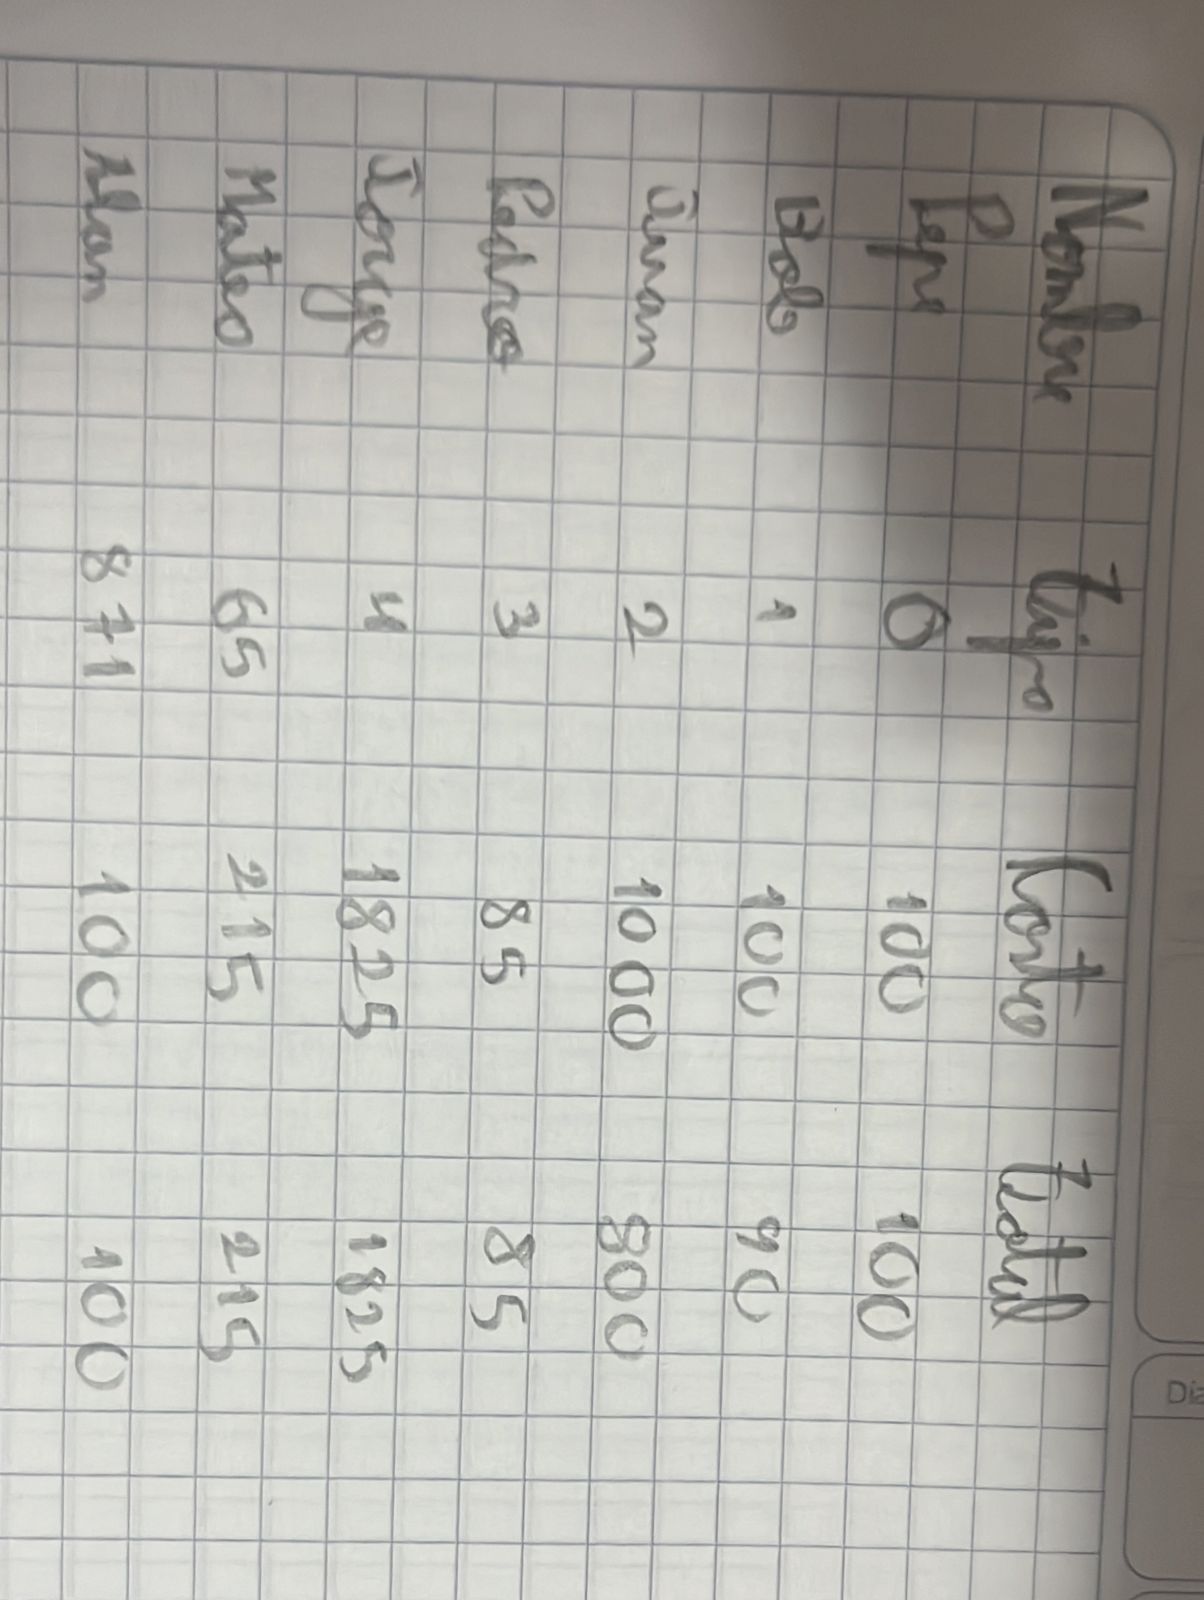 Nombre tipo Costo total
Pepe 0 100 100
Bob 1 100 90
Juan 2 1000 800
Pedro 3 85 85
Jorge 4 1825 1825
Mateo 65 215 215
Alan 871 100 100